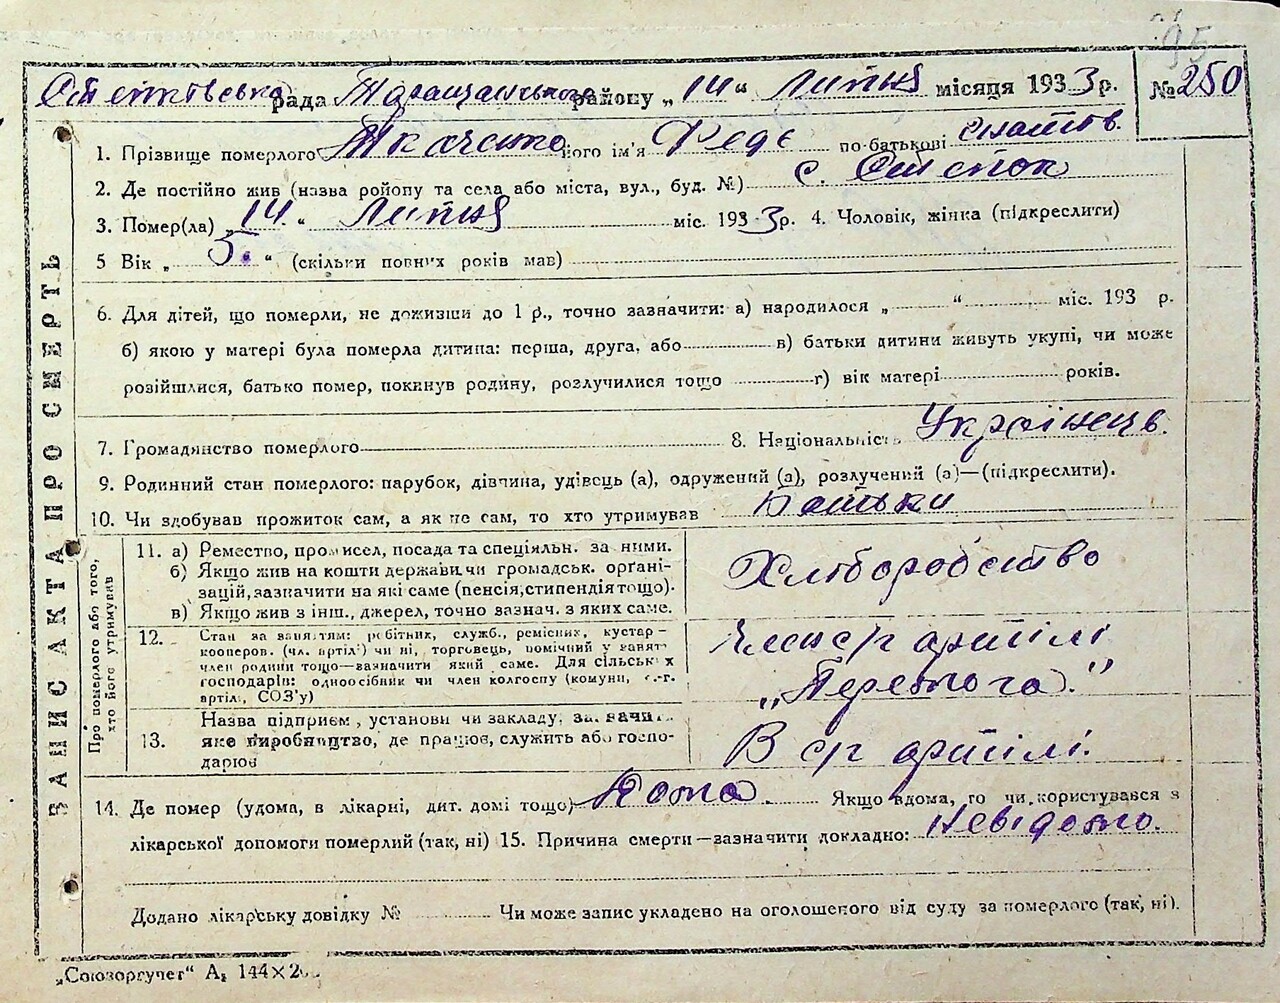 95
рада Таращанського району „ 14 “ Липня місяця 1933 р. № 250
ЗАПИС АКТА ПРО СМЕРТЬ
1. Прізвище померлого Ткаченко його ім'я Федь по-батькові
2. Де постійно жив (назва ройопу та села або міста, вул., буд. №) с.
3. Помер(ла) „ 14. “ Липня міс. 1933 р. 4. Чоловік, жінка (підкреслити)
5 Вік „ 5. “ (скільки повних років мав)
6. Для дітей, що померли, не доживши до 1 р., точно зазначити: а) народилося „ “ міс. 193 р.
б) якою у матері була померла дитина: перша, друга, або в) батьки дитини живуть укупі, чи може
розійшлися, батько помер, покинув родину, розлучилися тощо г) вік матері років.
7. Громадянство померлого 8. Національність Українець.
9. Родинний стан померлого: парубок, дівчина, удівець (а), одружений (а), розлучений (а)—(підкреслити).
10. Чи здобував прожиток сам, а як не сам, то хто утримував Батьки
Про померлого або того,
хто його утримував
11. а) Ремество, промисел, посада та спеціяльн. за ними.
б) Якщо жив на кошти держави чи громадськ. органі-
зацій, зазначити на які саме (пенсія, стипендія тощо).
в) Якщо жив з інш., джерел, точно зазнач. з яких саме.
Хліборобство
12. Стан за заняттям: робітник, служб., ремісник, кустар-
кооперов. (чл. артілі) чи ні, торговець, помічний у занят.
член родини тощо—зазначити який саме. Для сільських
господарів: одноосібник чи член колгоспу (комуни, с.-г.
артілі, СОЗ'у)
Член с/г артілі
„Перемога."
13. Назва підприєм., установи чи закладу, зазначит.
яке виробництво, де працює, служить або госпо-
дарює
В с/г артілі.
14. Де помер (удома, в лікарні, дит. домі тощо) Дома. Якщо вдома, то чи користувався з
лікарської допомоги померлий (так, ні) 15. Причина смерти—зазначити докладно: Невідомо.
Додано лікарську довідку № Чи може запис укладено на оголошеного від суду за померлого (так, ні).
„Союзоргучет“ А₅ 144×20